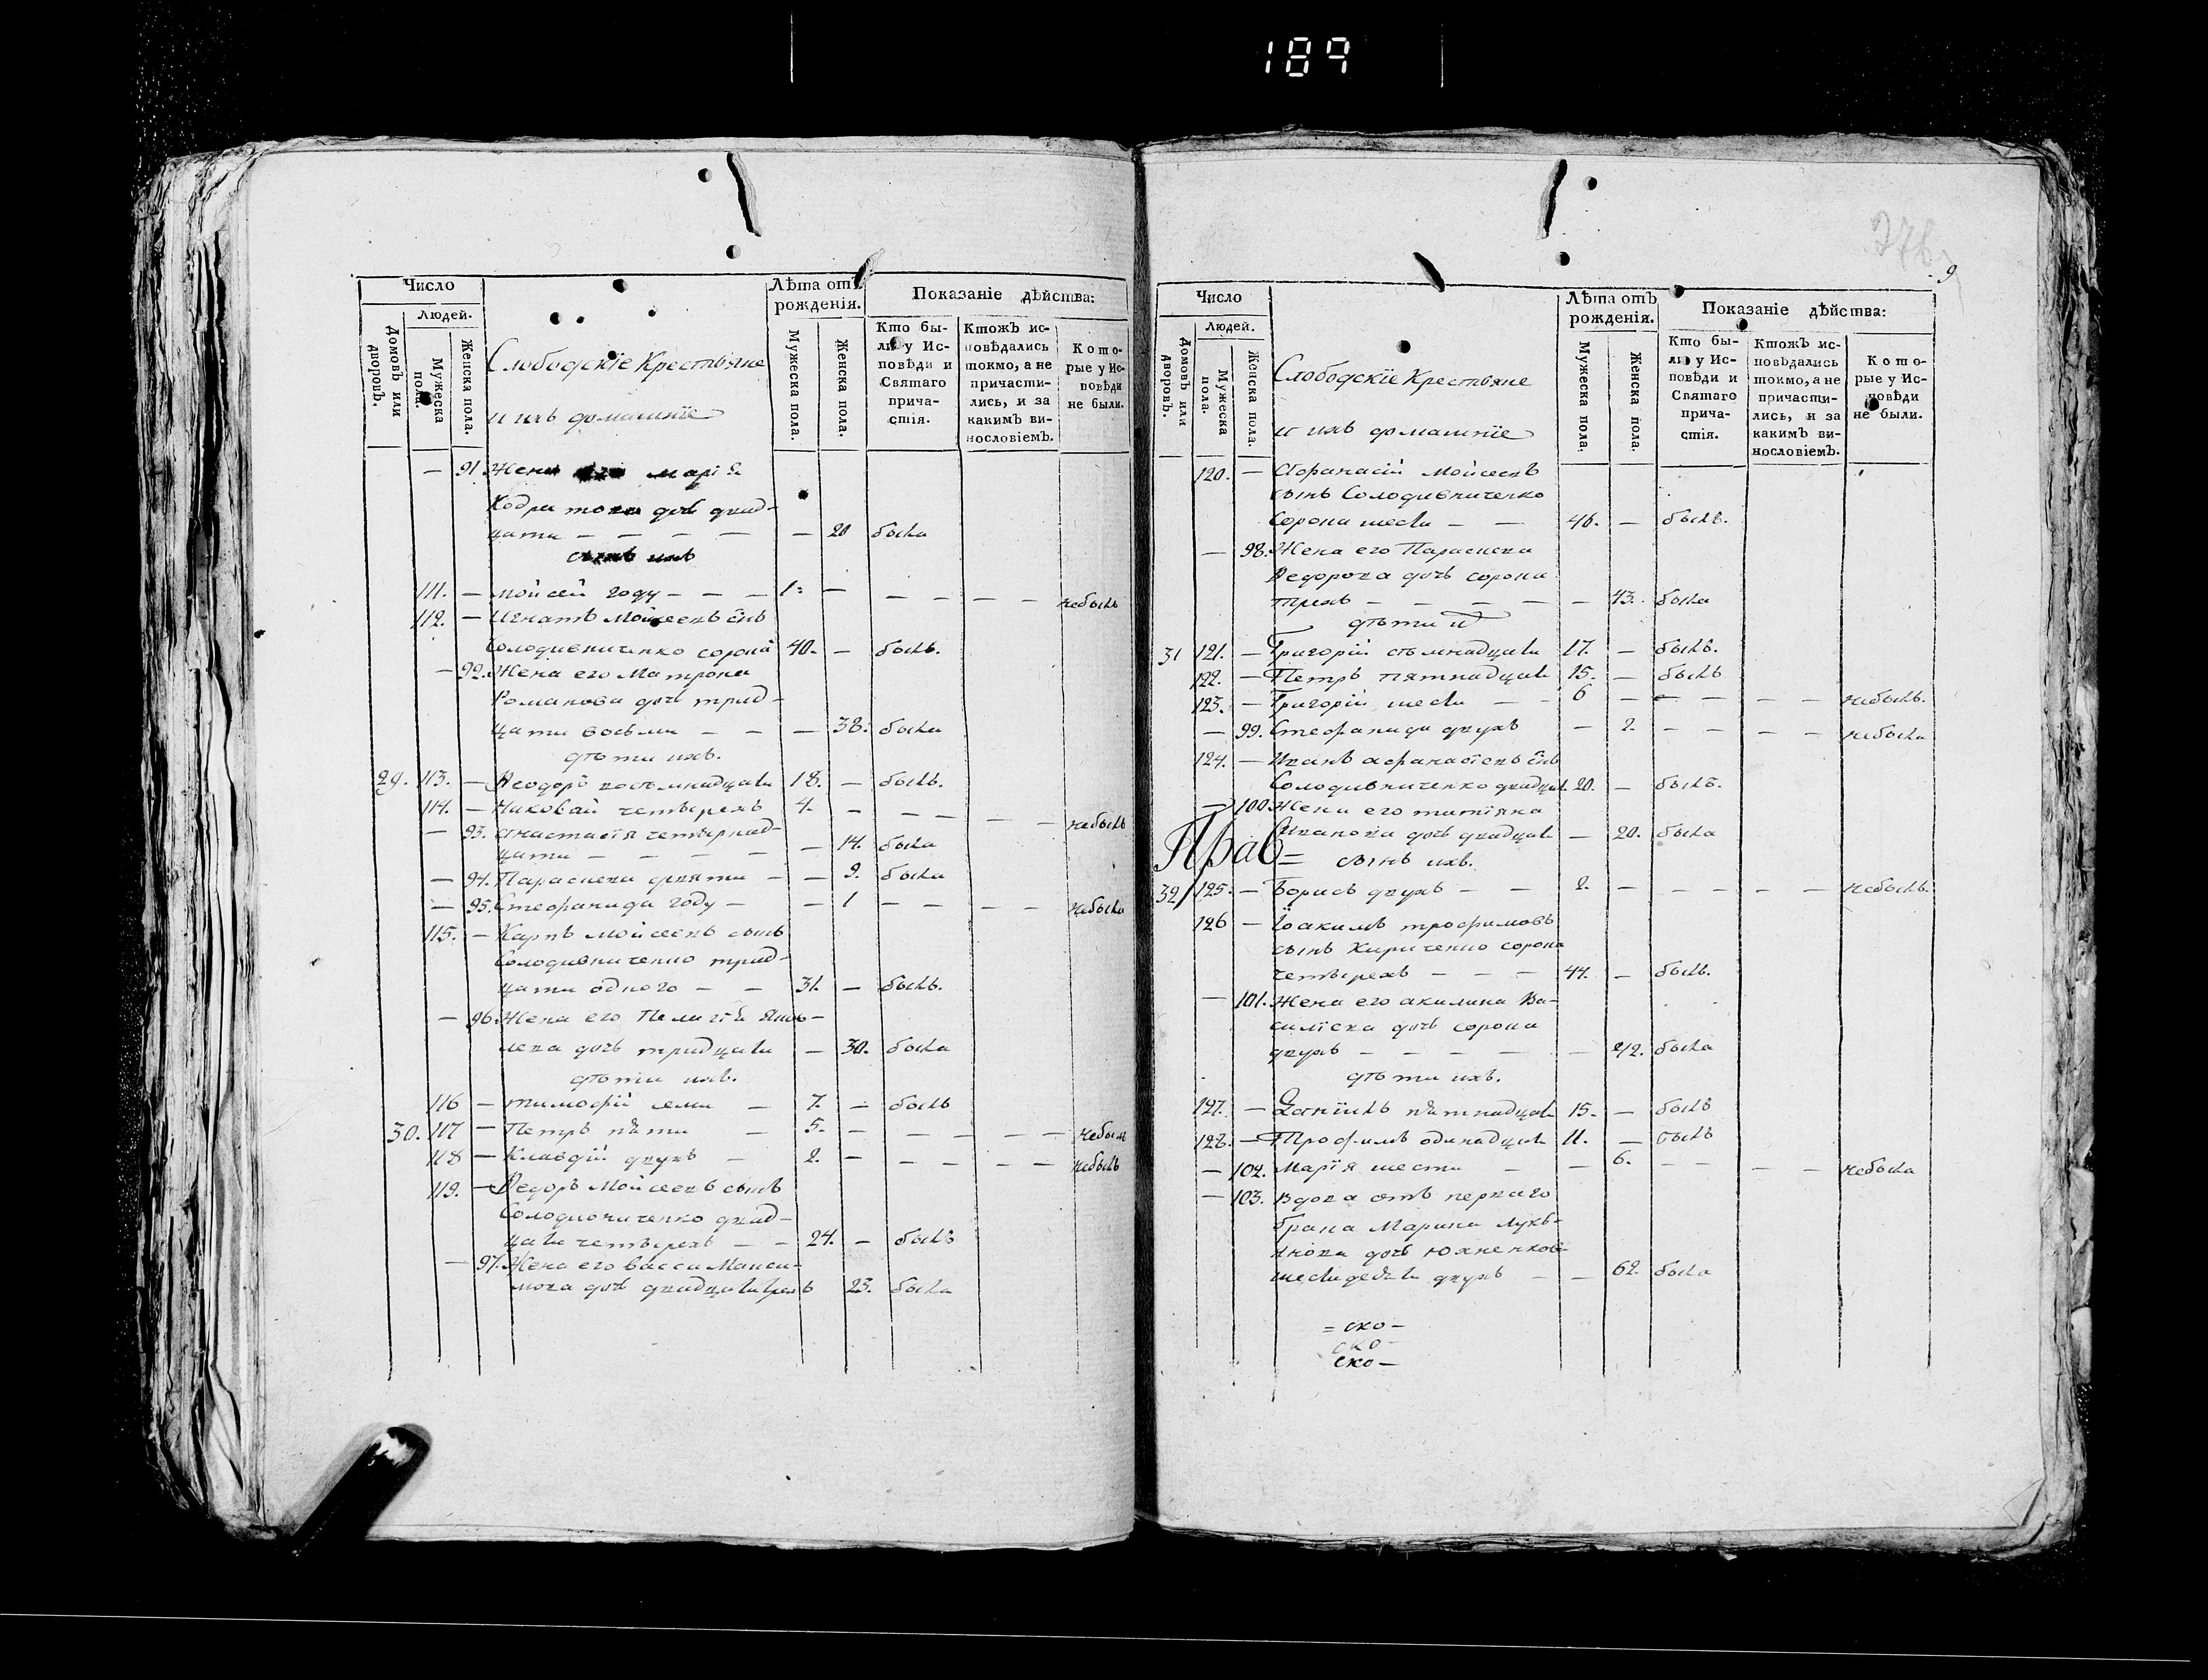 189
Число
Людей.
Домовъ или дворовъ.
Мужеска пола.
Женска пола.
Слободскіе Крестьяне
и ихъ домашніе
Лѣта отъ рожденія.
Мужеска пола.
Женска пола.
Показаніе дѣйства:
Кто бы-
ли у Ис-
повѣди и
Святаго
прича-
стія.
Ктожъ ис-
повѣдались
токмо, а не
причасти-
лись, и за
какимъ ви-
нословіемъ.
Кото-
рые у Ис-
повѣди
не были.
— 91. Жена его Марія
дочь двад-
цати — — — — — 20 была
сынъ ихъ
111. — Мойсей году — — — 1. — — — — — небылъ
112. — Игнатъ Мойсеевъ снъ
Солодивниченко сорока 40. — былъ.
— 92. Жена его Матрона
Романова дочь трид-
цати восьми — — — 38. была
дѣти ихъ.
29. 113. — Ѳеодоръ восѣмнадцати 18. — былъ.
114. — Николай четырехъ 4. — — — — — небылъ
— 93. Анастасія четырнад-
цати — — — — — 14. была
— 94. Параскева девяти — — 9. была
— 95. Стефанида году — — 1 — — — — небыла
115. — Карпъ Мойсеевъ сынъ
Солодивниченко трид-
цати одного — — 31. — былъ.
— 96. Жена его Пелагѣя Яков-
лева дочь тридцати — 30. была
дѣти ихъ.
116 — Тимофій семи — 7. — былъ
30. 117 — Петръ пѣти — 5. — — — — — небылъ
118 — Клавдій двухъ — 2. — — — — — небылъ
119. — Ѳедоръ Мойсеевъ сынъ
Солодивниченко двад-
цати четырехъ — — 24. — былъ
— 97. Жена его Васса Макси-
мова дочь двадцати трехъ 23. была
276
9
Число
Людей.
Домовъ или дворовъ.
Мужеска пола.
Женска пола.
Слободскіе Крестьяне
и ихъ домашніе
Лѣта отъ рожденія.
Мужеска пола.
Женска пола.
Показаніе дѣйства:
Кто бы-
ли у Ис-
повѣди и
Святаго
прича-
стія.
Ктожъ ис-
повѣдались
токмо, а не
причасти-
лись, и за
какимъ ви-
нословіемъ.
Кото-
рые у Ис-
повѣди
не были.
120. — Афанасій Мойсеевъ
сынъ Солодивниченко
сорока шести — — 46. — былъ.
— 98. Жена его Параскева
Ѳедорова дочь сорока
трехъ — — — — — 43. была
дѣти их
31 121. — Григорій сѣмнадцати 17. — былъ.
122. — Петръ пятнадцати 15. — былъ
123. — Григорій шести — — 6 — — — — небылъ.
— 99. Стефанида двухъ — 2. — — — — небыла
124. — Иванъ Афанасіевъ снъ
Солодивниченко двадцати 20. — былъ.
— 100. Жена его Татіяна
Иванова дочь двадцати — 20. была
Прав= сынъ ихъ.
32 125. — Борисъ двухъ — — 2. — — — — небылъ.
126 — Іоакимъ Трофимовъ
сынъ Кириченко сорока
четырехъ — — — 44. — былъ.
— 101. Жена его Акилина Ва-
силіева дочь сорока
двухъ — — — — — 42. была
дѣти ихъ.
127. — Даніилъ пѣтнадцати 15. — былъ
128. — Трофимъ одинадцати 11. — былъ
— 102. Марія шести — — 6. — — — — небыла
— 103. Вдова отъ перваго
брака Марина Лукь-
янова дочь Юхненкова
шестидесѣти двухъ — — 62. была
= ско —
ско —
ско —